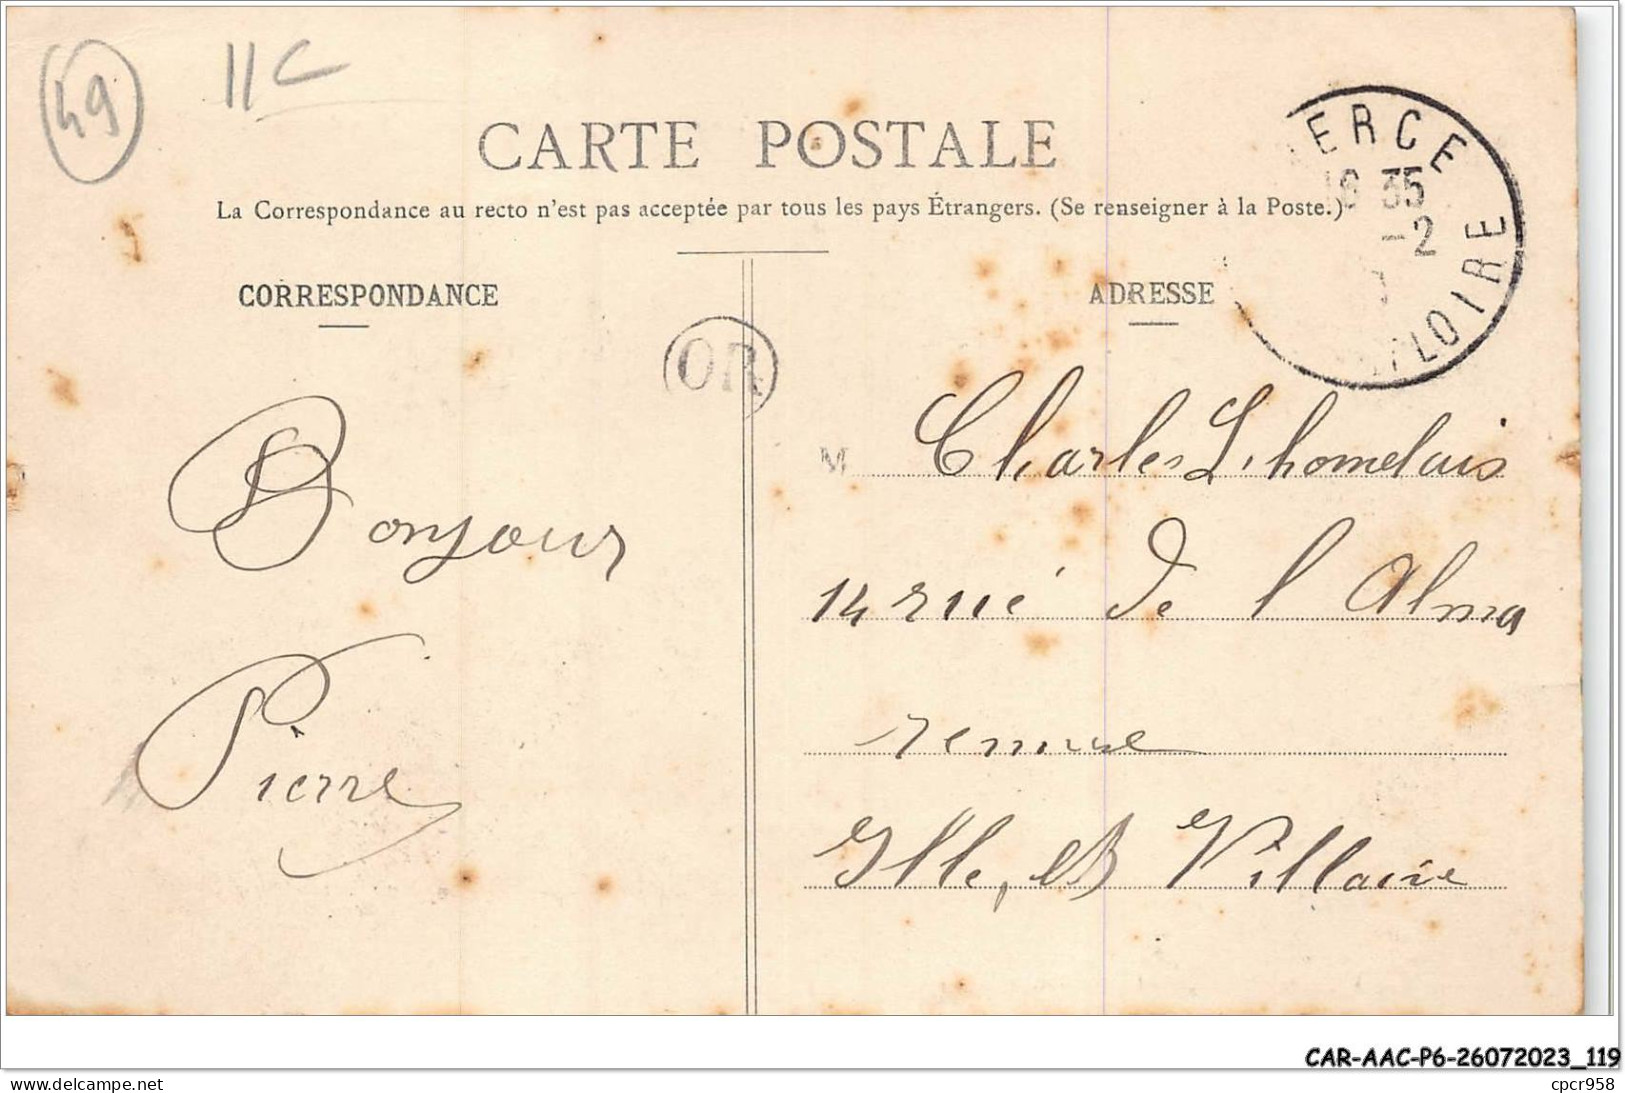 49
11C
CARTE POSTALE
La Correspondance au recto n'est pas acceptée par tous les pays Étrangers. (Se renseigner à la Poste.)
ERCE
6 35
-2
LOIRE
CORRESPONDANCE
ADRESSE
OR
M Charles Lhomelais
14 rue de l Alma
renne
Ille, et Villaine
Bonjour
Pierre
CAR-AAC-P6-26072023_119
delcampe.net
cpcr958